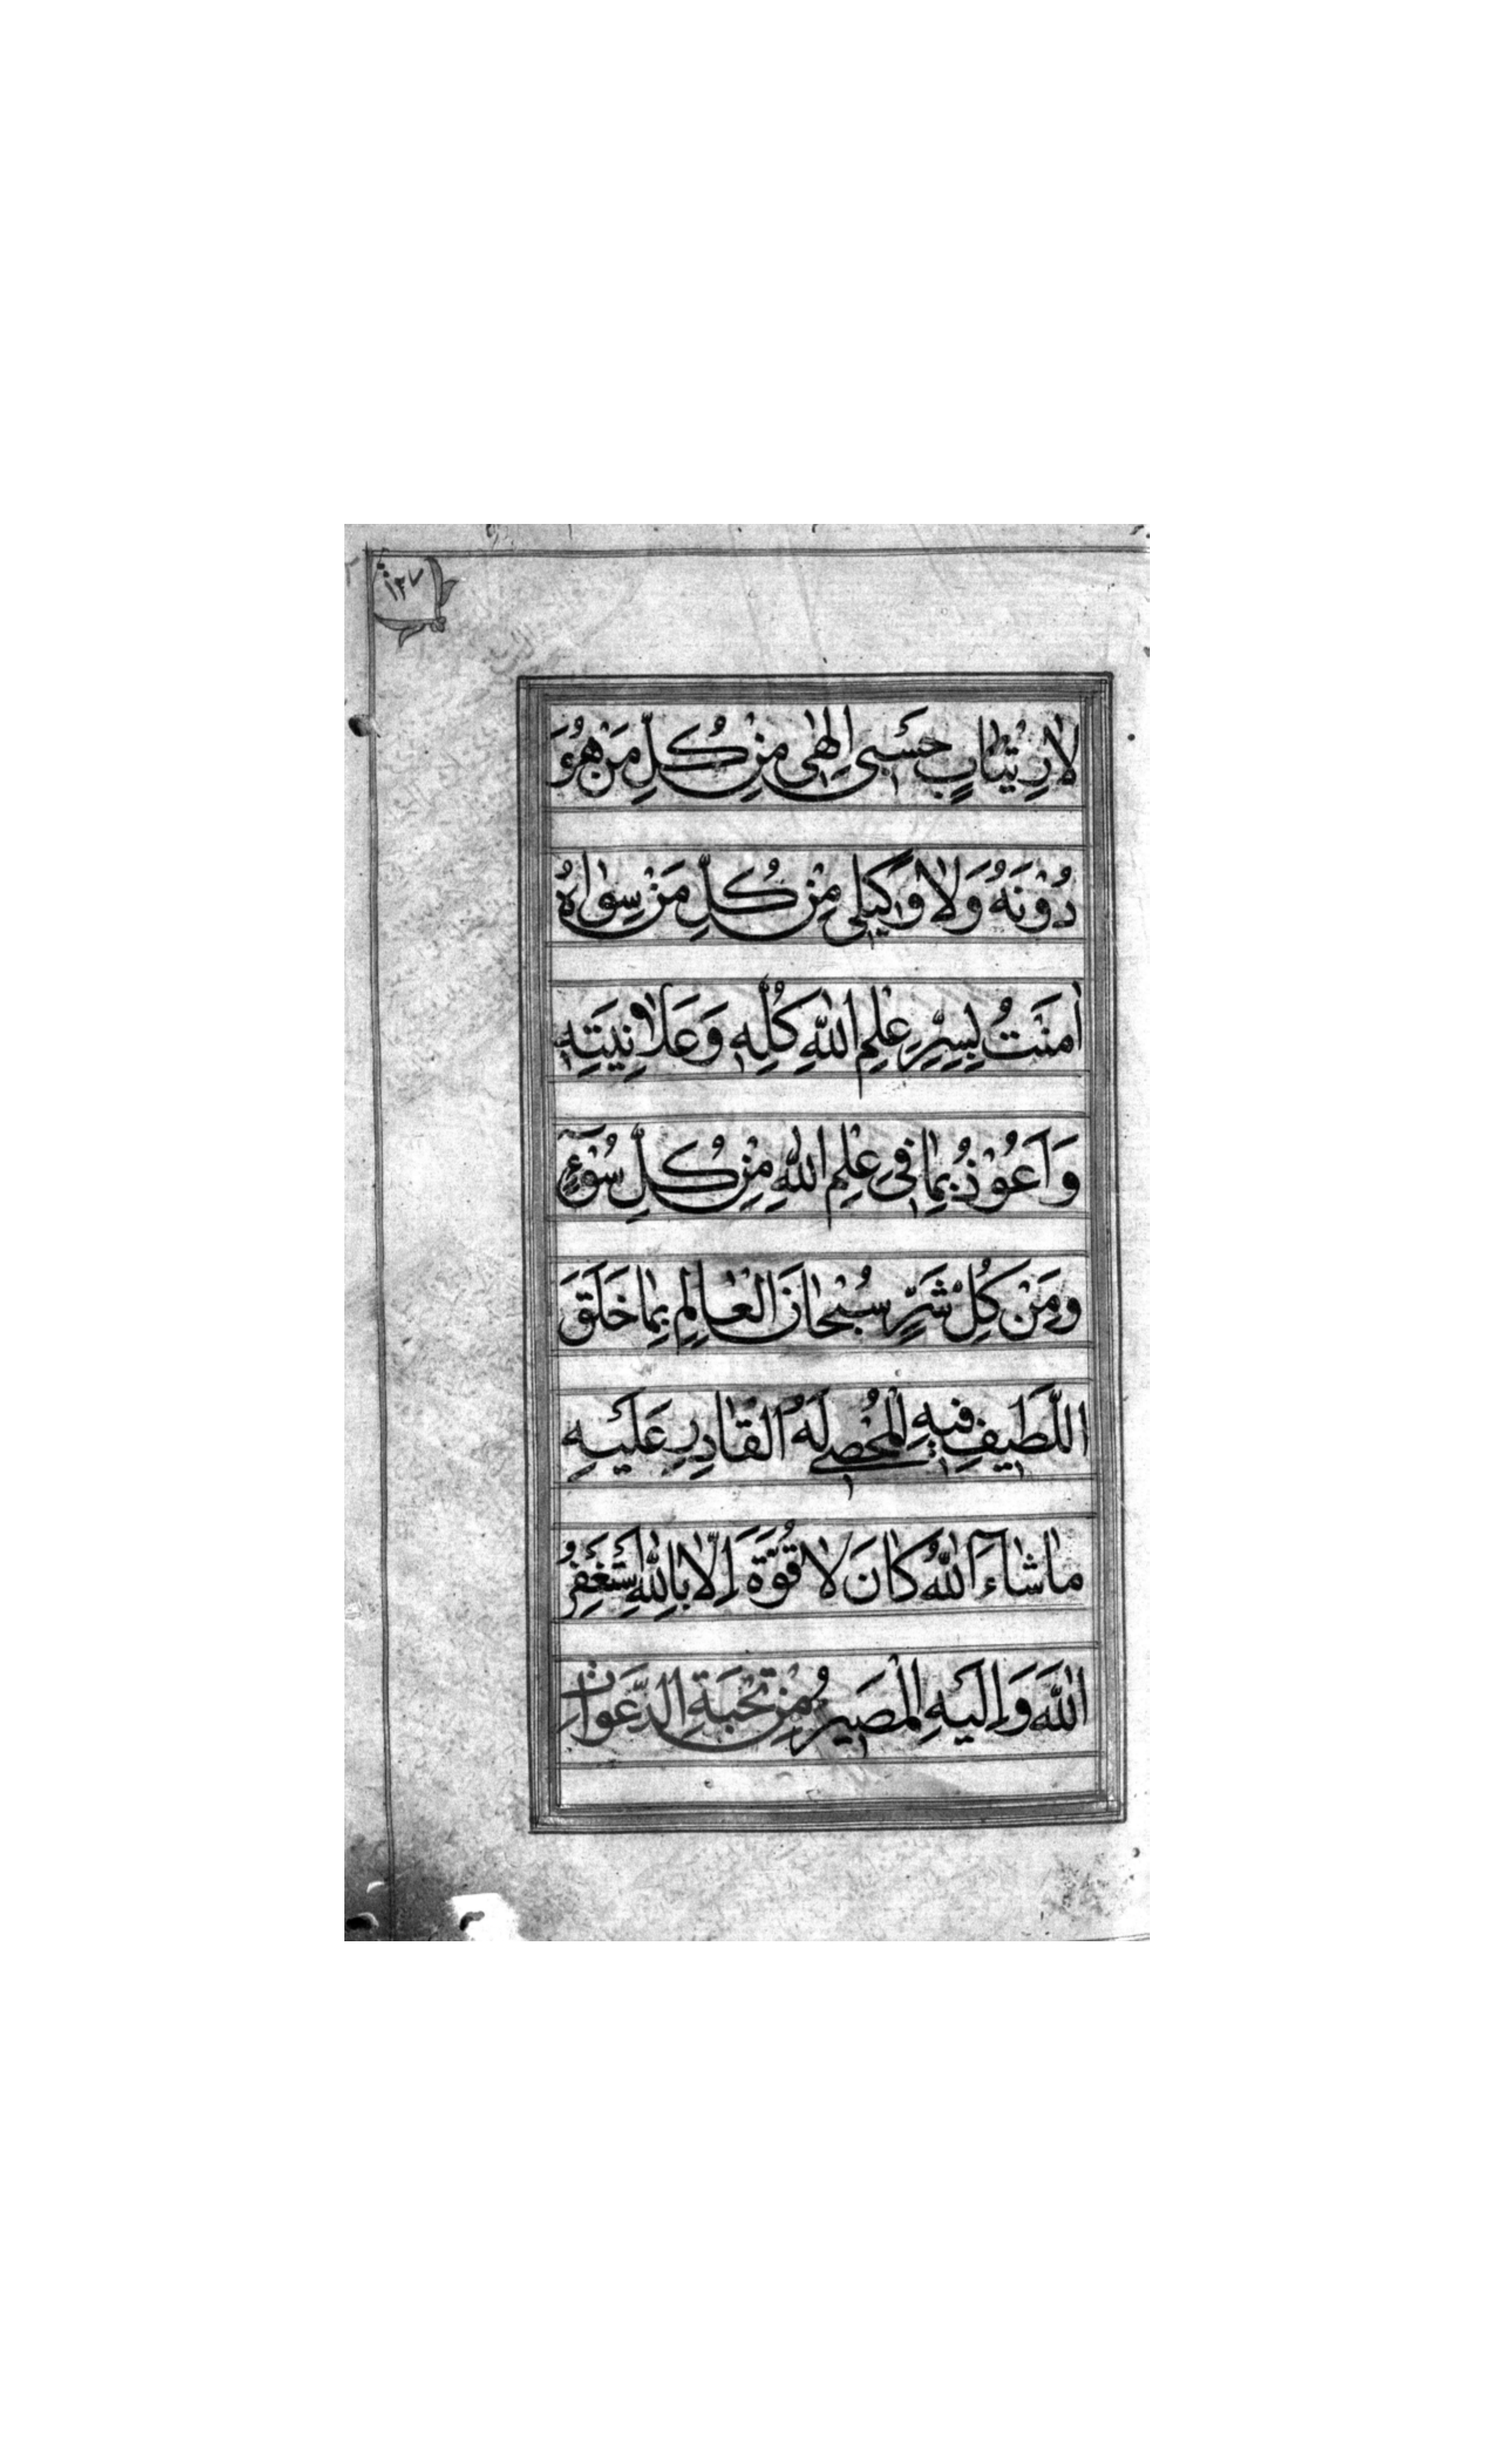 ١٣٧
لاِرْتِيٰابٍ حَسْبِي اِلٰهِي مِنْ كُلِّ مَنْ هُوَ
دُوْنَهُ وَلاٰ وَكِيلِي مِنْ كُلِّ مَنْ سِوٰاهُ
اٰمَنْتُ بِسِرِّ عِلْمِ اللّٰهِ كُلِّهِ وَعَلاٰنِيَتِهِ
وَاَعُوْذُ بِمٰا فِي عِلْمِ اللّٰهِ مِنْ كُلِّ سُوْءٍ
وَمِنْ كُلِّ شَرٍّ سُبْحٰانَ الْعٰالِمِ بِمٰا خَلَقَ
اللَّطِيفِ فِيهِ الْمُحْصِي لَهُ الْقٰادِرِ عَلَيْهِ
مٰا شٰاءَ اللّٰهُ كٰانَ لاٰ قُوَّةَ اِلاّٰ بِاللّٰهِ اَسْتَغْفِرُ
اللّٰهَ وَاِلَيْهِ الْمَصِيرُ مِنْ نُخْبَةِ الدَّعَوٰاتِ